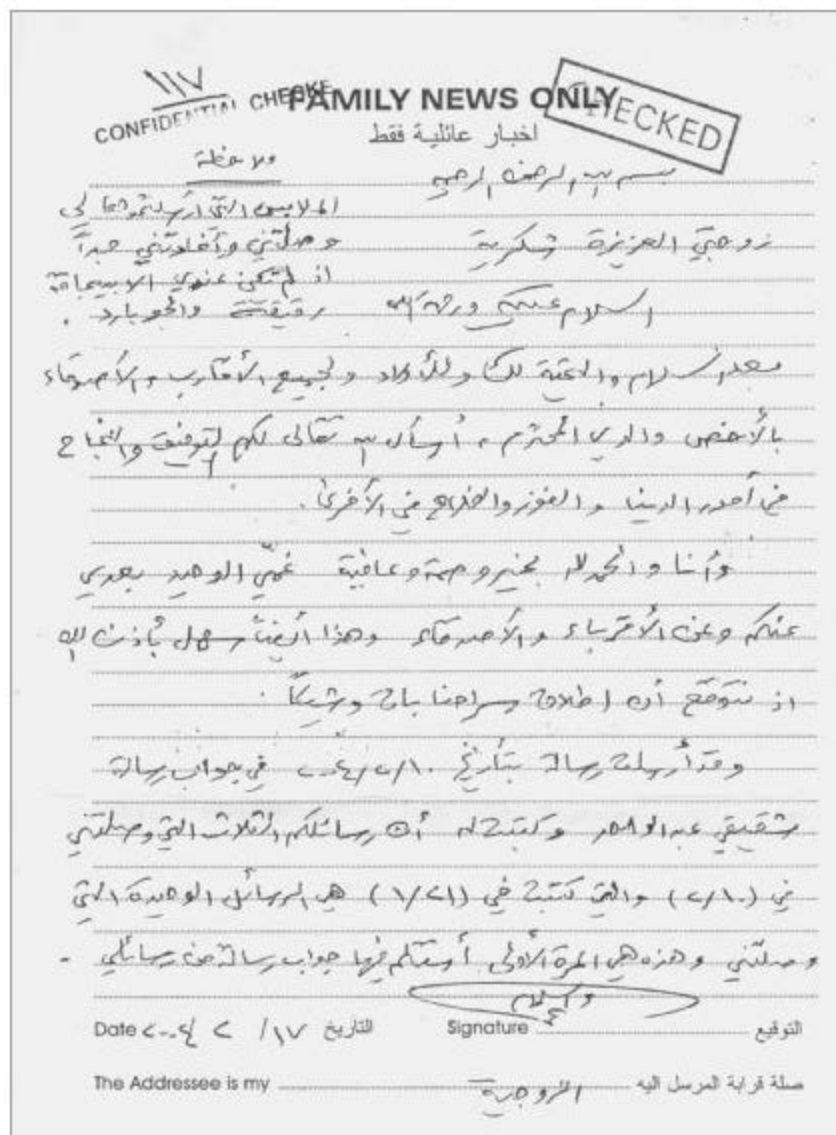 ١١٧
CONFIDENTIAL CHECKE
FAMILY NEWS ONLY
CHECKED
اخبار عائلية فقط
ملاحظة
الملابس التي أرسلتموها لي
وصلتني وأفادتني جداً
اذ لم تكن عندي الا بيجامة
رقيقة والجو بارد .
بسم الله الرحمن الرحيم
زوجتي العزيزة شكرية
السلام عليكم ورحمة الله
بعد السلام والتحية لك وللأولاد ولجميع الأقارب والأصدقاء
بالأخص والدي المحترم ، أسأل الله تعالى لكم التوفيق والنجاح
في أمور الدنيا والفوز والفلاح في الأخرى .
وأنا والحمد لله بخير وصحة وعافية غمّي الوحيد بعدي
عنكم وعن الأقرباء والأصدقاء وهذا أيضاً سهل بأذن الله
اذ نتوقع أن اطلاق سراحنا بات وشيكاً .
وقد أرسلت رسالة بتأريخ ٢٠٠٤/٢/١٠ في جواب رسالة
شقيقي عبد الواحد وكتبت له أن رسائلكم الثلاث التي وصلتني
في (٢/١٠) والتي كتبت في (١/٢١) هي الرسائل الوحيدة التي
وصلتني وهذه هي المرة الأولى أستلم فيها جواب رسالة من رسائلي .
والسلام
Date ٢٠٠٤ / ٢ / ١٧ التاريخ Signature التوقيع
The Addressee is my الزوجية صلة قرابة المرسل اليه